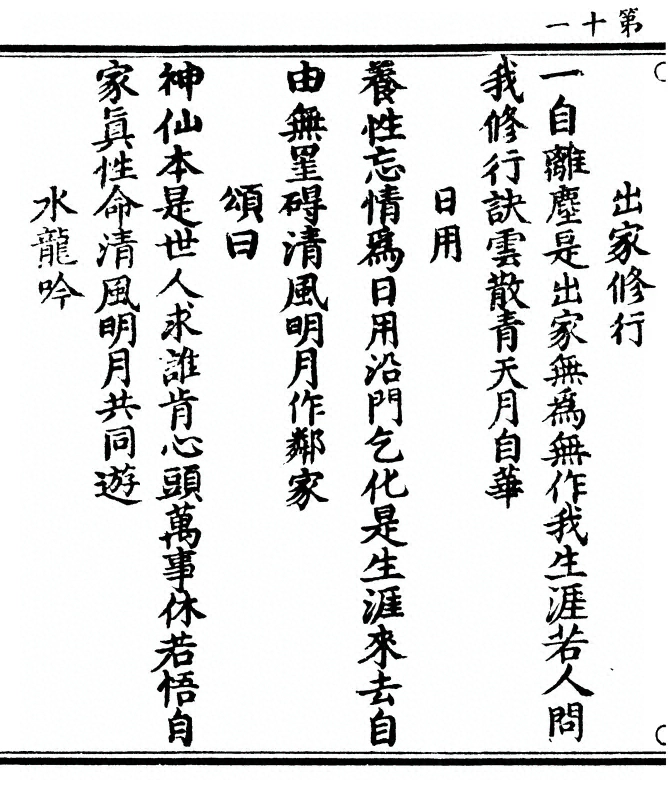 第十一
出家修行
一自離塵是出家無爲無作我生涯若人問
我修行訣雲散青天月自華
日用
養性忘情爲日用沿門乞化是生涯來去自
由無罣碍清風明月作鄰家
頌曰
神仙本是世人求誰肯心頭萬事休若悟自
家眞性命清風明月共同遊
水龍吟